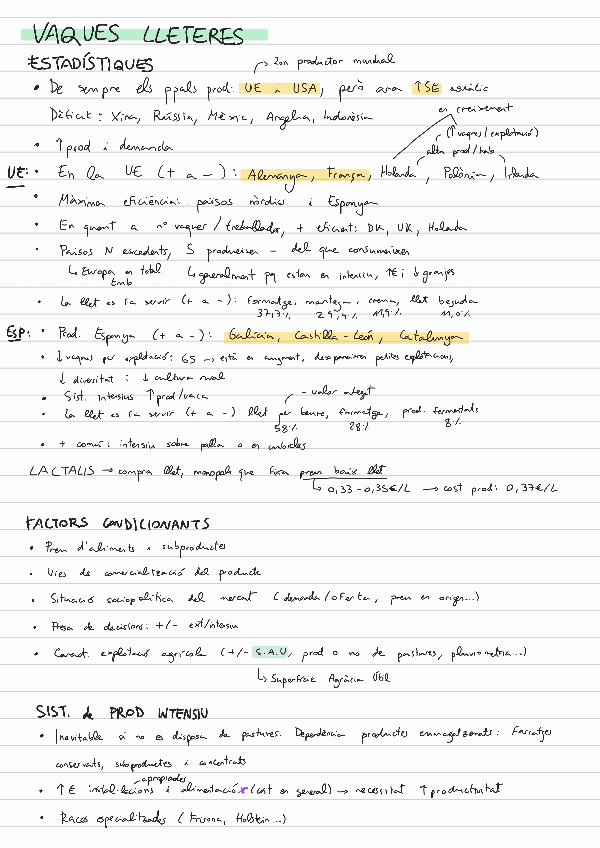 VAQUES LLETERES
ESTADÍSTIQUES
→ 2on productor mundial
• De sempre els ppals prod: UE i USA, però ara ↑SE asiàtic
Dèficit: Xina, Rússia, Mèxic, Angelia, Indonèsia
en creixement
• ↑prod i demanda
(↑vaques/explotació)
alta prod/hab
UE: • En la UE (+ a -): Alemanya, França, Holanda, Polònia, Irlanda
• Màxima eficiència: països nòrdics i Espanya
• En quant a nº vaques/treballador, + eficient: DK, UK, Holanda
• Països N excedents, S produeixen - del que consumeixen
↳ Europa en total tmb ↳ generalment pq estan en intensiu, ↑€ i ↓granjes
• La llet es fa servir (+ a -): formatge, mantega, crema, llet beguda
37,7% 29,4% 11,9% 11,0%
ESP: • Prod. Espanya (+ a -): Galícia, Castilla-León, Catalunya
• ↓vaques per explotació: 65 → està en augment, desapareixen petites explotacions,
↓ diversitat i ↓ cultura rural
• Sist. intensius ↑prod/vaca
- valor afegit
• La llet es fa servir (+ a -): llet per beure, formatge, prod. fermentats
58% 28% 8%
• + comú: intensiu sobre palla o en cubicles
LACTALIS → compra llet, monopoli que fixa preu baix llet
↳ 0,33-0,35€/L → cost prod: 0,37€/L
FACTORS CONDICIONANTS
• Preu d'aliments i subproductes
• Vies de comercialització del producte
• Situació sociopolítica del mercat (demanda/oferta, preu en origen...)
• Presa de decisions: +/- ext/intensiu
• Caract. explotació agrícola (+/- S.A.U, prod o no de pastures, pluviometria...)
↳ Superfície Agrària Útil
SIST. de PROD INTENSIU
• Inevitable si no es disposa de pastures. Dependència productes emmagatzemats: Farratjes
conservats, subproductes i concentrats
apropiades
• ↑€ instal·lacions i alimentació x (cost en general) → necessitat ↑productivitat
• Races especialitzades (Frisona, Holstein...)